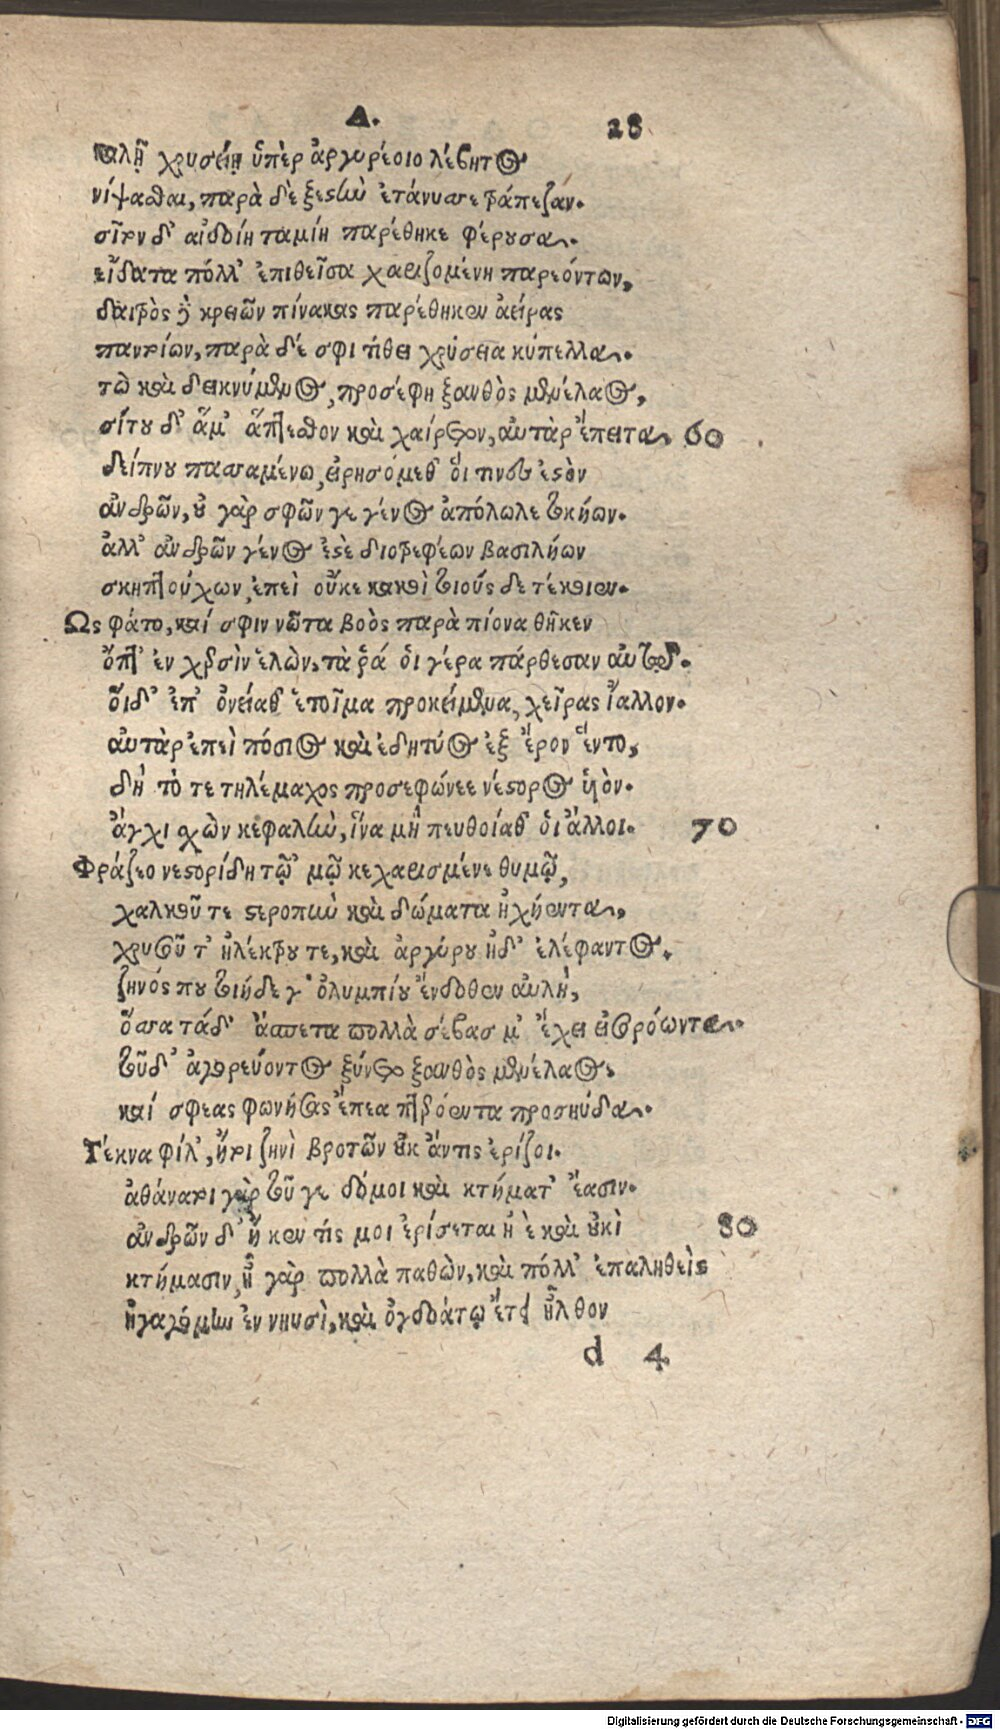 Δ. 28
καλῇ χρυσείῃ ὑπὲρ ἀργυρέοιο λέβητος
νίψασθαι, παρὰ δὲ ξεστὴν ἐτάνυσσε τράπεζαν.
σῖτον δ' αἰδοίη ταμίη παρέθηκε φέρουσα.
εἴδατα πόλλ' ἐπιθεῖσα χαριζομένη παρεόντων,
δαιτρὸς δὲ κρειῶν πίνακας παρέθηκεν ἀείρας
παντοίων, παρὰ δέ σφι τίθει χρύσεια κύπελλα.
τὼ καὶ δεικνύμενος, προσέφη ξανθὸς μενέλαος,
σίτου δ' ἅμ' ἅπτεσθον καὶ χαίρετον, αὐτὰρ ἔπειτα 60
δείπνου πασσαμένω, εἰρησόμεθ' οἵ τινες ἐστὸν
ἀνδρῶν, οὐ γὰρ σφῶν γε γένος ἀπόλωλε τοκήων.
ἀλλ' ἀνδρῶν γένος ἐστὲ διοτρεφέων βασιλήων
σκηπτούχων, ἐπεὶ οὔκε κακοὶ τοιούς δε τέκοιεν.
Ὣς φάτο, καί σφιν νῶτα βοὸς παρὰ πίονα θῆκεν
ὄπτ' ἐν χερσὶν ἑλὼν, τὰ ῥά οἱ γέρα πάρθεσαν αὐτῷ.
οἵ δ' ἐπ' ὀνείαθ' ἑτοῖμα προκείμενα, χεῖρας ἴαλλον.
αὐτὰρ ἐπεὶ πόσιος καὶ ἐδητύος ἐξ ἔρον ἕντο,
δὴ τό τε τηλέμαχος προσεφώνεε νέστορος υἱὸν.
ἄγχι σχὼν κεφαλὴν, ἵνα μὴ πευθοίαθ' οἱ ἄλλοι. 70
Φράζεο νεστορίδη τῷ' μῷ κεχαρισμένε θυμῷ,
χαλκοῦ τε στεροπὴν καὶ δώματα ἠχήεντα,
χρυσοῦ τ' ἠλέκτρου τε, καὶ ἀργύρου ἠδ' ἐλέφαντος.
ζηνός που τοιήδε γ' ὀλυμπίου ἔνδοθεν αὐλή,
ὅσσα τάδ' ἄσπετα πολλὰ σέβας μ' ἔχει εἰσορόωντα.
τοῦδ' ἀγορεύοντος ξύνετο ξανθὸς μενέλαος,
καί σφεας φωνήσας ἔπεα πτερόεντα προσηύδα.
Τέκνα φίλ', ἤτοι ζηνὶ βροτῶν οὐκ ἄντις ἐρίζοι.
ἀθάνατοι γὰρ τοῦ γε δόμοι καὶ κτήματ' ἔασιν.
ἀνδρῶν δ' ἤ κεν τίς μοι ἐρίσεται ἠὲ καὶ οὐκὶ 80
κτήμασιν, ἦ γὰρ πολλὰ παθὼν, καὶ πόλλ' ἐπαληθεὶς
ἠγαγόμην ἐν νηυσὶ, καὶ ὀγδοάτῳ ἔτει ἦλθον
d 4
Digitalisierung gefördert durch die Deutsche Forschungsgemeinschaft - DFG